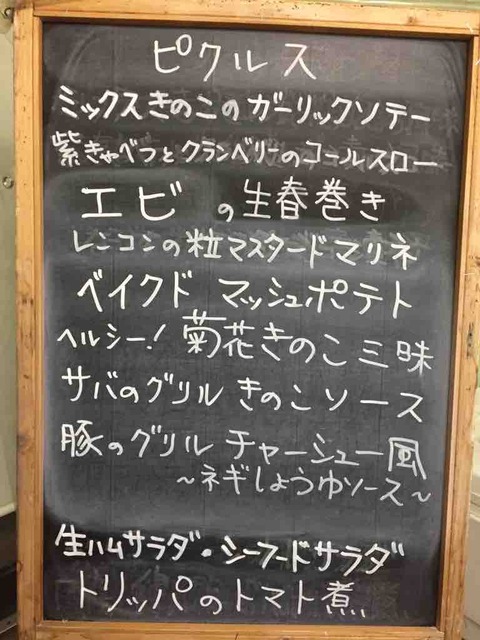 ピクルス
ミックスきのこのガーリックソテー
紫きゃべつとクランベリーのコールスロー
エビの生春巻き
レンコンの粒マスタードマリネ
ベイクド マッシュポテト
ヘルシー!菊花きのこ三昧
サバのグリル きのこソース
豚のグリル チャーシュー風
~ネギしょうゆソース~
生ハムサラダ・シーフードサラダ
トリッパのトマト煮